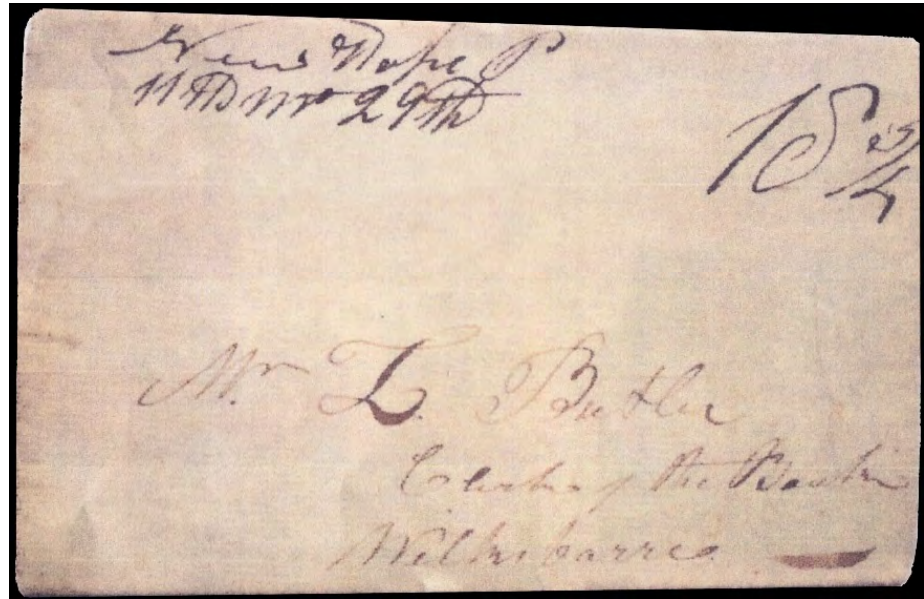 New Hope P
11th mo 29th
18 3/4
Mr L. Butler
of the Bank
Wilksbarre